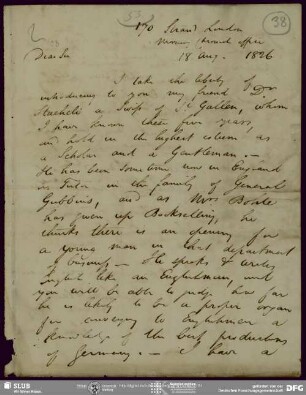 38
180 Strand London
Morning Chronicle office
18 Aug. 1826
Dear Sir
I take the liberty of
introducing to you my friend Dr
Staehele a Swiss of St Gallen, whom
I have known these five years
and hold in the highest esteem as
a Scholar and a Gentleman. —
He has been some time now in England
as Tutor in the family of General
Gubbins, and as Bohte
has given up Bookselling, he
thinks there is an opening for
a young man in that department
of business — He speaks & writes
English like an Englishman, and
you will be able to judge how far
he is likely to be a proper organ
for conveying to Englishmen a
knowledge of the best productions
of Germany. — I have a
SLUB
DFG